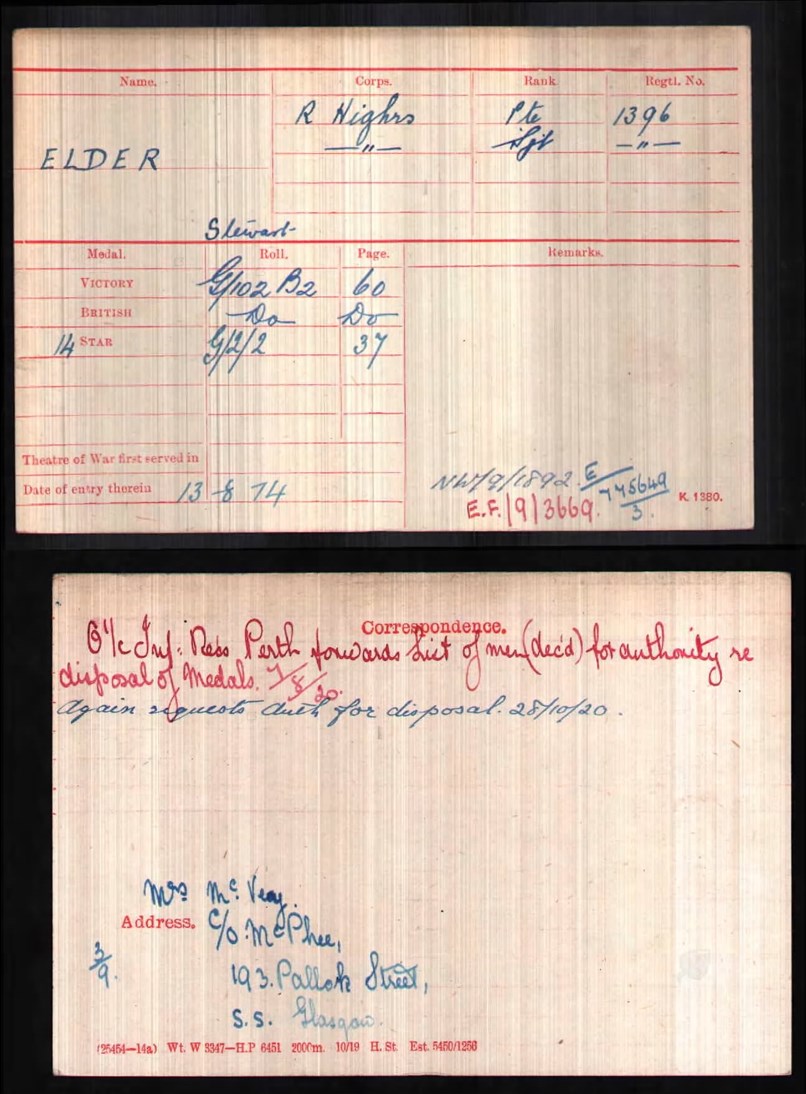 Name. Corps. Rank. Regtl. No.
R Highrs Pte 1396
—"— Sjt —"—
ELDER
Stewart
Medal. Roll. Page. Remarks.
VICTORY G/102 B2 60
BRITISH Do Do
14 STAR G/2/2 37
Theatre of War first served in
Date of entry therein 13 8 14
NW/9/1892. E
E.F./9/3669. 3.
K. 1380.
Correspondence.
O i/c Inf: Recs Perth forwards List of men (dec'd) for authority re
disposal of Medals. 7/8/20.
Again requests auth for disposal. 28/10/20.
Mrs McVeay.
Address. C/o. McPhee,
3/9. 193. Pallok Street,
S.S. Glasgow.
(25454—14a) Wt. W 3347—H.P 6451 2000m. 10/19 H. St. Est. 5450/1256